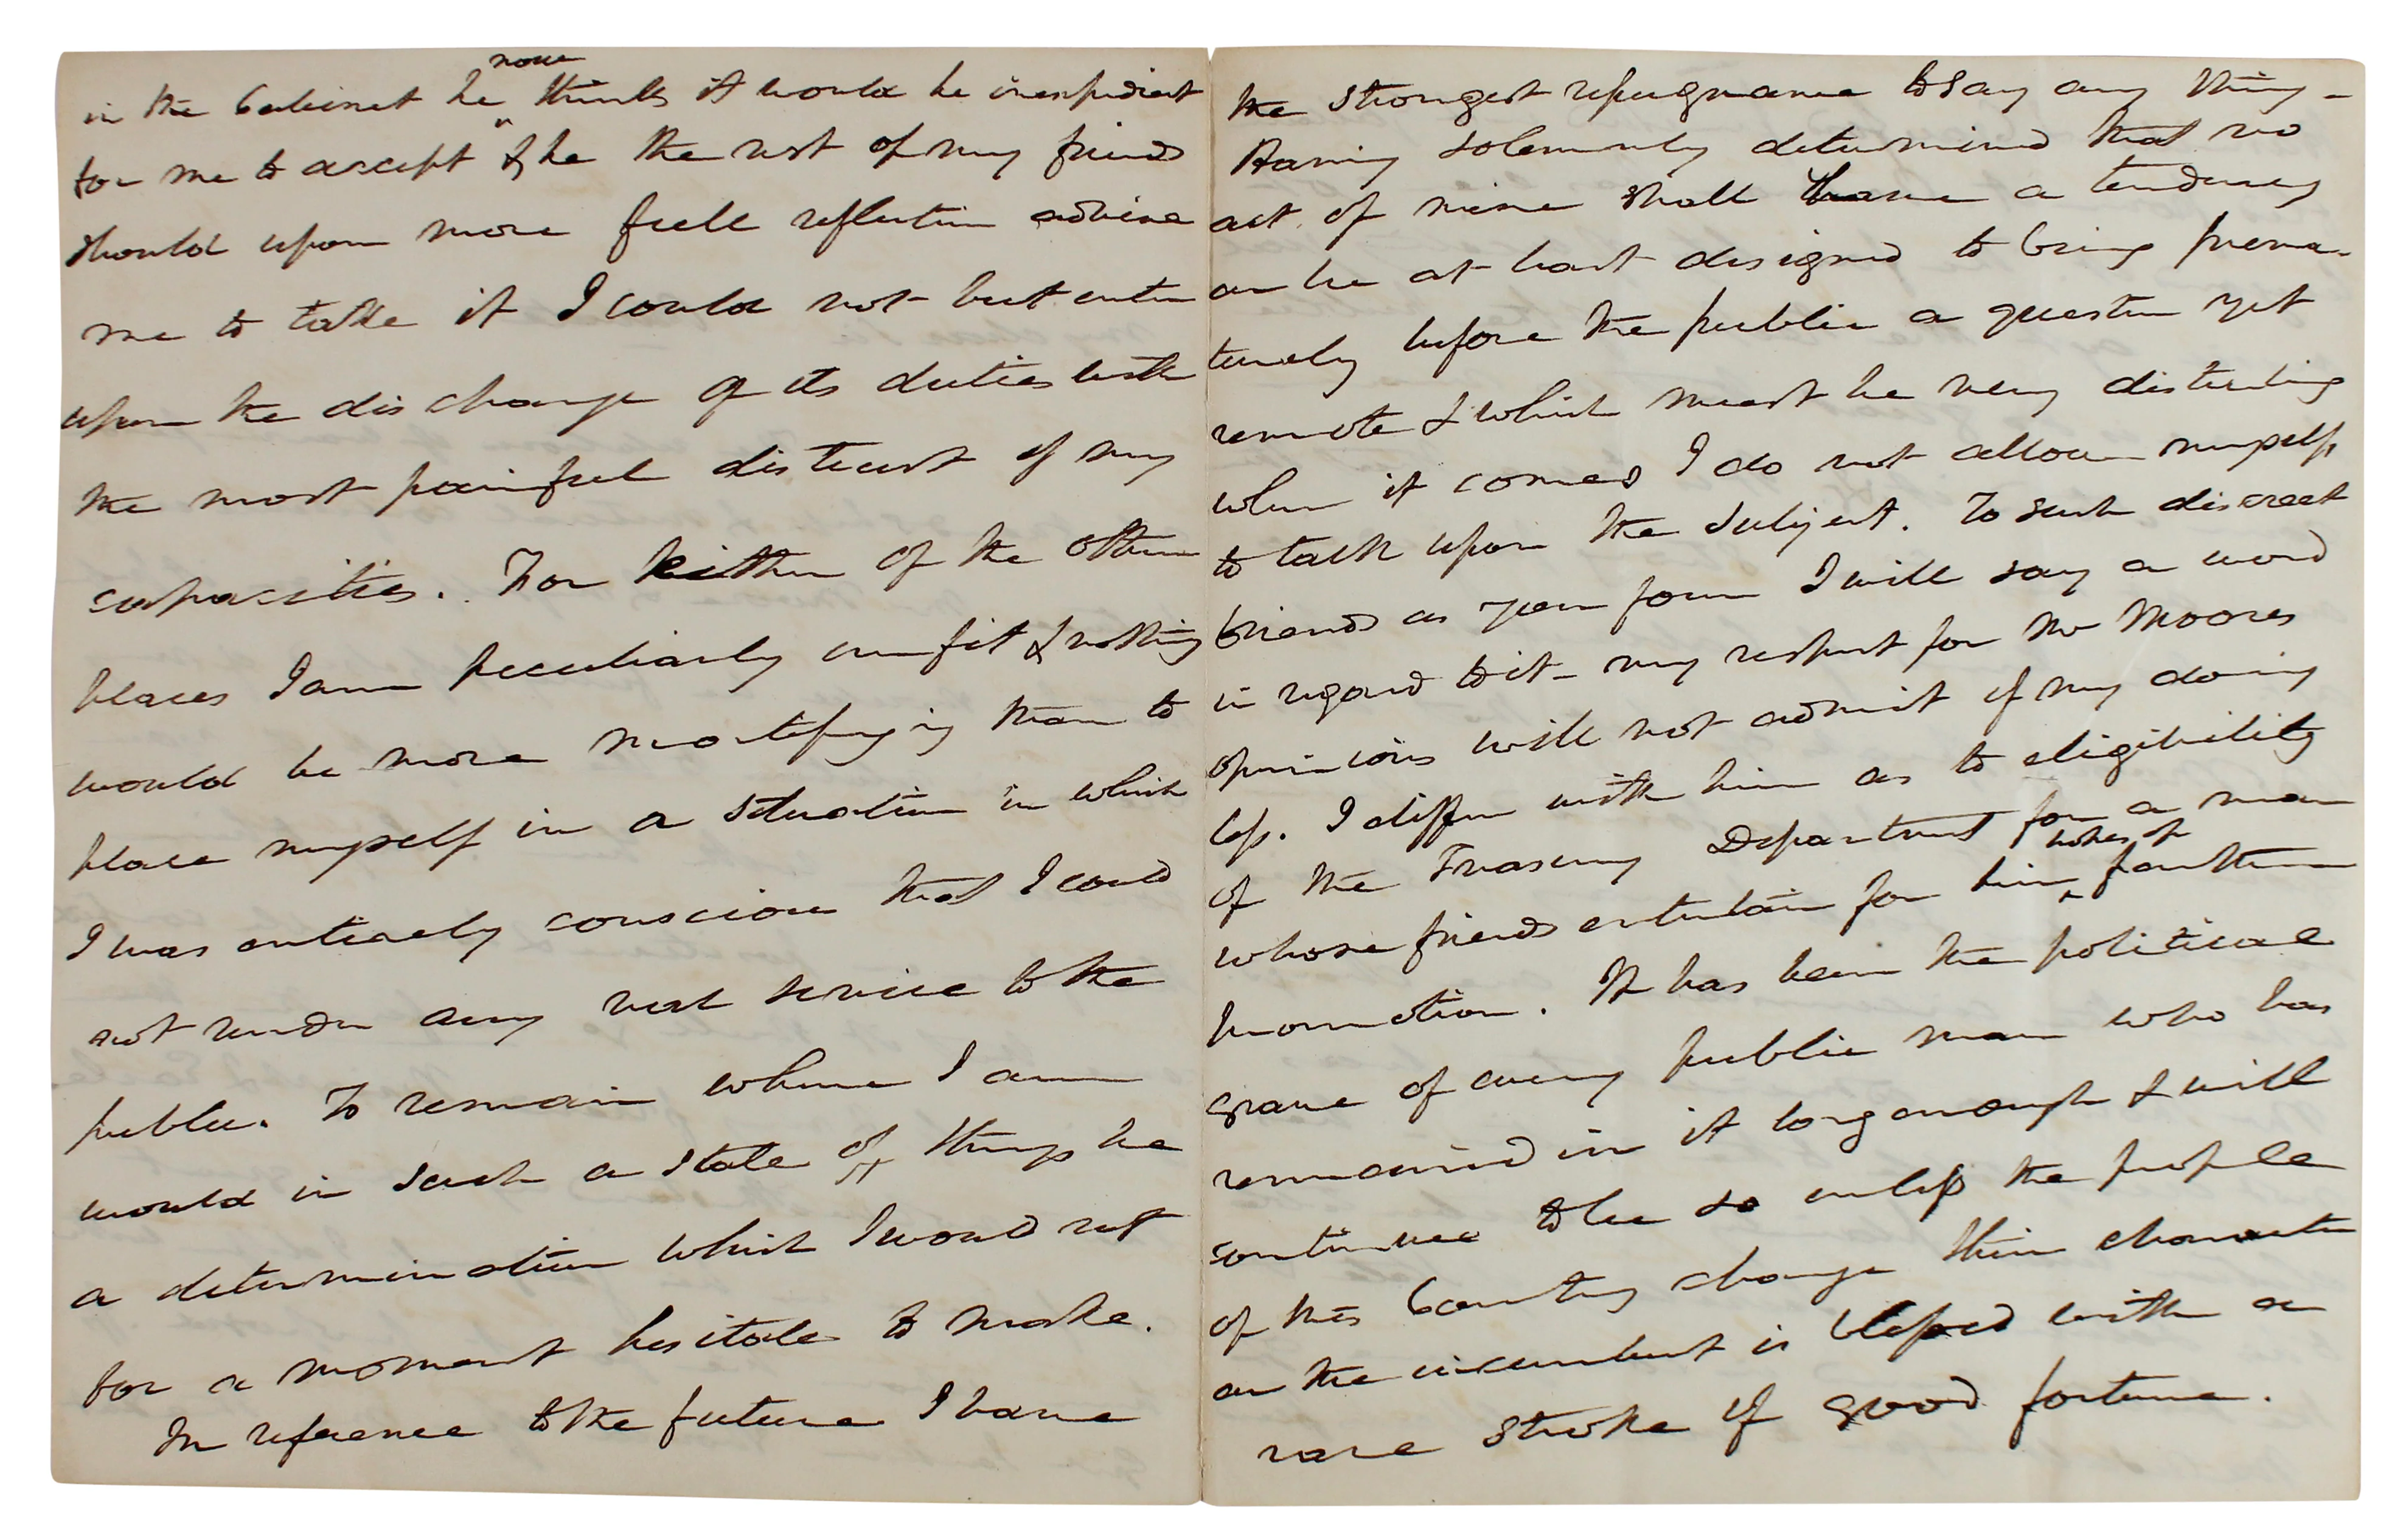 in the Cabinet he now thinks it would be inexpedient
for me to accept & he the rest of my friends
should upon more full reflection advise
me to take it I could not but enter
upon the discharge of its duties with
the most painful distrust of my
capacities. For either of the other
places I am peculiarly unfit & nothing
would be more mortifying than to
place myself in a situation in which
I was entirely conscious that I could
not render any real service to the
public. To remain where I am
would in such a state of things be
a determination which I would not
for a moment hesitate to make.
In reference to the future I have
the strongest repugnance to say any thing -
Having solemnly determined that no
act of mine shall have a tendency
or be at least designed to bring prema-
turely before the public a question yet
remote & which must be very disturbing
when it comes I do not allow myself
to talk upon the subject. To such discreet
friends as you four I will say a word
in regard to it - my respect for Mr Moores
opinions will not admit of my doing
less. I differ with him as to eligibility
of the Treasury Department for a man
whose friends entertain for him hopes of further
promotion. It has been the political
grave of every public man who has
remained in it long enough & will
continue to be so unless the people
of this Country change their character
or the incumbent is blessed with a
rare stroke of good fortune.